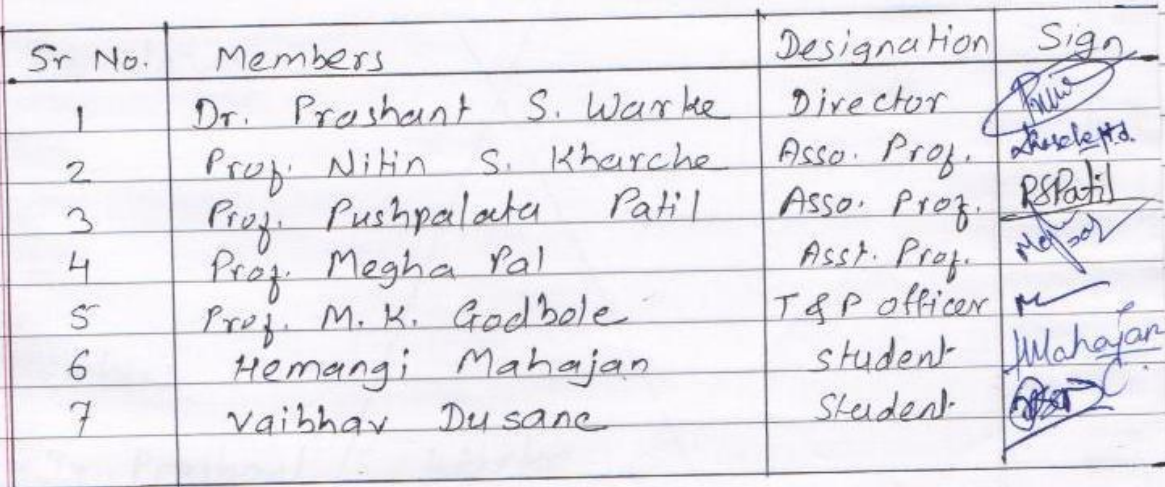 Sr No. Members Designation Sign
1 Dr. Prashant S. Warke Director
2 Prof. Nitin S. Kharche Asso. Prof.
3 Prof. Pushpalata Patil Asso. Prof. PSPatil
4 Prof. Megha Pal Asst. Prof.
5 Prof. M. K. Godbole T & P officer
6 Hemangi Mahajan student HMahajan
7 Vaibhav Dusane Student